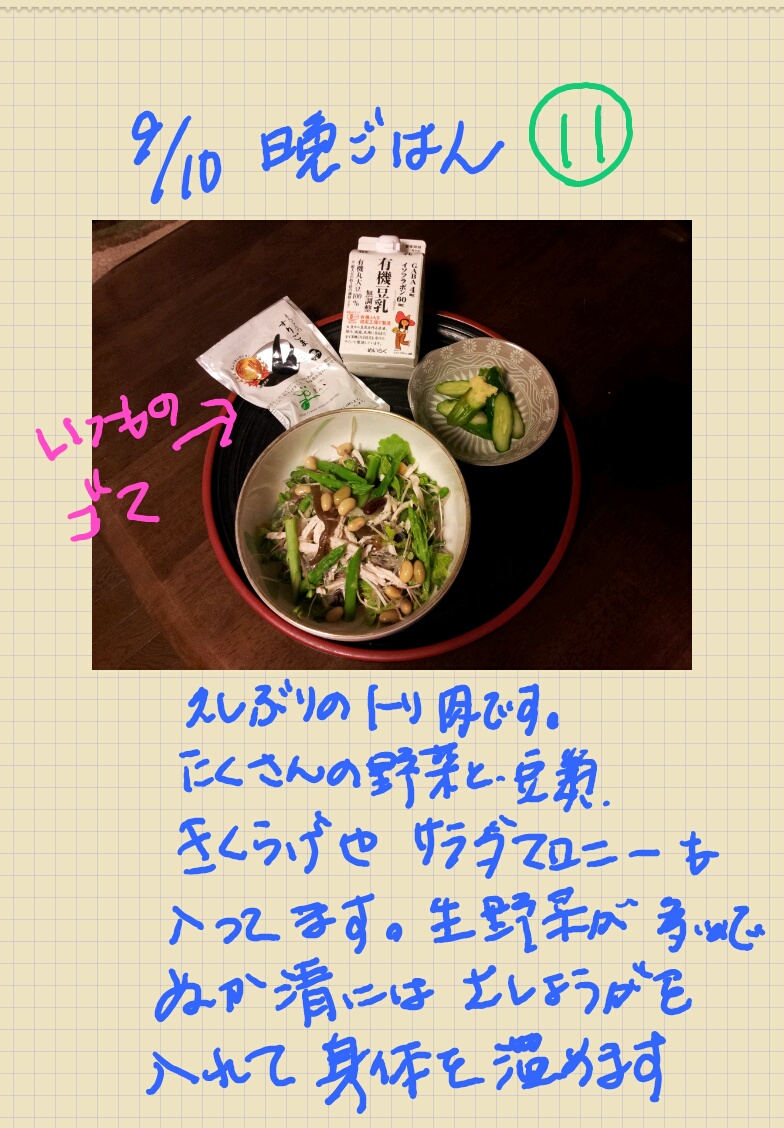 9/10 晩ごはん ⑪
GABA 4mg
イソフラボン 60mg
有機豆乳
無調整
有機丸大豆100%
めいらく
いつもの
ゴマ
久しぶりのトリ肉です。
たくさんの野菜と、豆類、
きくらげや サラダマロニーも
入ってます。生野菜が多いので
ぬか漬には 土しょうがを
入れて 身体を 温めます